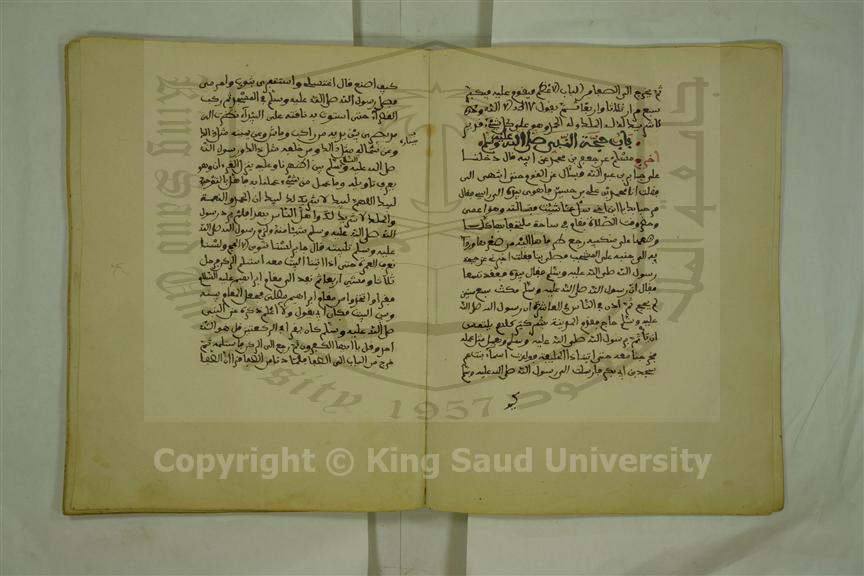 ثم يخرج الى الصفا من الباب الاعظم فيقوم عليه فيكبر
سبع مرار ثلاثا يقول لا اله الا الله وحده
لا شريك له له الملك وله الحمد وهو على كل شيء قدير
باب حجة النبي صلى الله عليه وسلم
اخرج مسلم عن جعفر بن محمد عن ابيه قال دخلنا
على جابر بن عبد الله فسال عن القوم حتى انتهى الى
فقلت انا محمد بن علي بن حسين فاهوى بيده الى راسي فقال
مرحبا بك يا ابن اخي سل عما شئت فسالته وهو اعمى
وحضر وقت الصلاة فقام في ساجة ملتحفا بها كلما
وضعها على منكبيه رجع طرفاها اليه من صغرها ورداؤه
الى جنبه على المشجب فصلى بنا فقلت اخبرني عن حجة
رسول الله صلى الله عليه وسلم فقال بيده فعقد تسعا
فقال ان رسول الله صلى الله عليه وسلم مكث تسع سنين
لم يحج ثم اذن في الناس في العاشرة ان رسول الله صلى الله
عليه وسلم حاج فقدم المدينة بشر كثير كلهم يلتمس
ان ياتم برسول الله صلى الله عليه وسلم ويعمل مثل عمله
فخرجنا معه حتى اتينا ذا الحليفة فولدت اسماء بنت عم
محمد بن ابي بكر فارسلت الى رسول الله صلى الله عليه وسلم
كيف
كيف اصنع قال اغتسلي واستثفري بثوب واحرمي
فصلى رسول الله صلى الله عليه وسلم في المسجد ثم ركب
القصواء حتى استوت به ناقته على البيداء نظرت
مد بصري بين يديه من راكب وماش وعن يمينه مثل ذلك
وعن شماله مثل ذلك ومن خلفه مثل ذلك ورسول الله
صلى الله عليه وسلم بين اظهرنا وعليه ينزل القرءان وهو
يعرف تاويله وما عمل من شيء عملنا به فاهل بالتوحيد
لبيك اللهم لبيك لا شريك لك لبيك ان الحمد والنعمة
والملك لا شريك لك واهل الناس بهذا فلم يرد رسول
الله صلى الله عليه وسلم شيئا منه ولزم رسول الله صلى الله
عليه وسلم تلبيته قال جابر لسنا ننوي الا الحج ولسنا
نعرف العمرة حتى اذا اتينا البيت معه استلم الركن فرمل
ثلاثا ومشى اربعا ثم نفذ الى مقام ابراهيم عليه السلام
فقرا واتخذوا من مقام ابراهيم مصلى فجعل المقام بينه
وبين البيت فكان ابي يقول ولا اعلم ذكره عن النبي
صلى الله عليه وسلم كان يقرا في الركعتين قل هو الله
احد وقل يا ايها الكافرون ثم رجع الى الركن فاستلمه ثم
خرج من الباب الى الصفا فلما دنا من الصفا قرا ان الصفا
King Saud University
جامعة الملك سعود
1957
Copyright © King Saud University